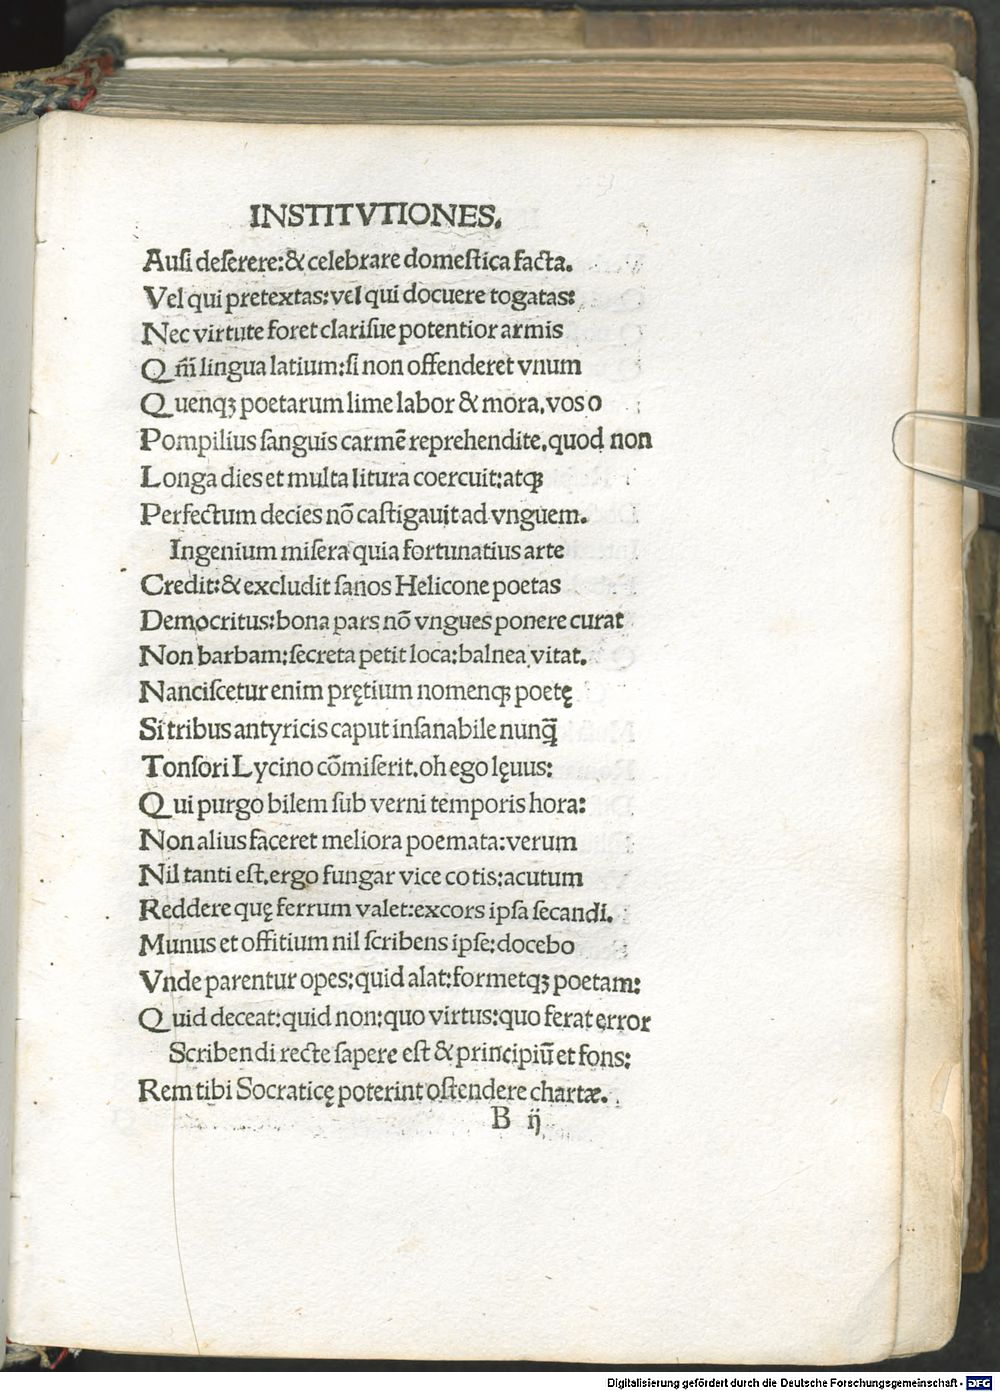 INSTITVTIONES.
Auſi deſerere:& celebrare domeſtica facta.
Vel qui pretextas:vel qui docuere togatas:
Nec virtute foret clariſue potentior armis
Qm̄ lingua latium:ſi non offenderet vnum
Quenqꝫ poetarum lime labor & mora.vos o
Pompilius ſanguis carmē reprehendite.quod non
Longa dies et multa litura coercuit:atqꝫ
Perfectum decies nō caſtigauit ad vnguem.
Ingenium miſera quia fortunatius arte
Credit:& excludit ſanos Helicone poetas
Democritus:bona pars nō vngues ponere curat
Non barbam:ſecreta petit loca:balnea vitat.
Nanciſcetur enim prętium nomenqꝫ poetę
Si tribus antyricis caput inſanabile nunꝗ̄
Tonſori Lycino cōmiſerit.oh ego lęuus:
Qui purgo bilem ſub verni temporis hora:
Non alius faceret meliora poemata:verum
Nil tanti eſt.ergo fungar vice cotis:acutum
Reddere quę ferrum valet:excors ipſa ſecandi.
Munus et offitium nil ſcribens ipſe:docebo
Vnde parentur opes:quid alat:formetqꝫ poetam:
Quid deceat:quid non:quo virtus:quo ferat error
Scribendi recte ſapere eſt & principiū et fons:
Rem tibi Socraticę poterint oſtendere chartæ.
B ij
Digitalisierung gefördert durch die Deutsche Forschungsgemeinschaft - DFG